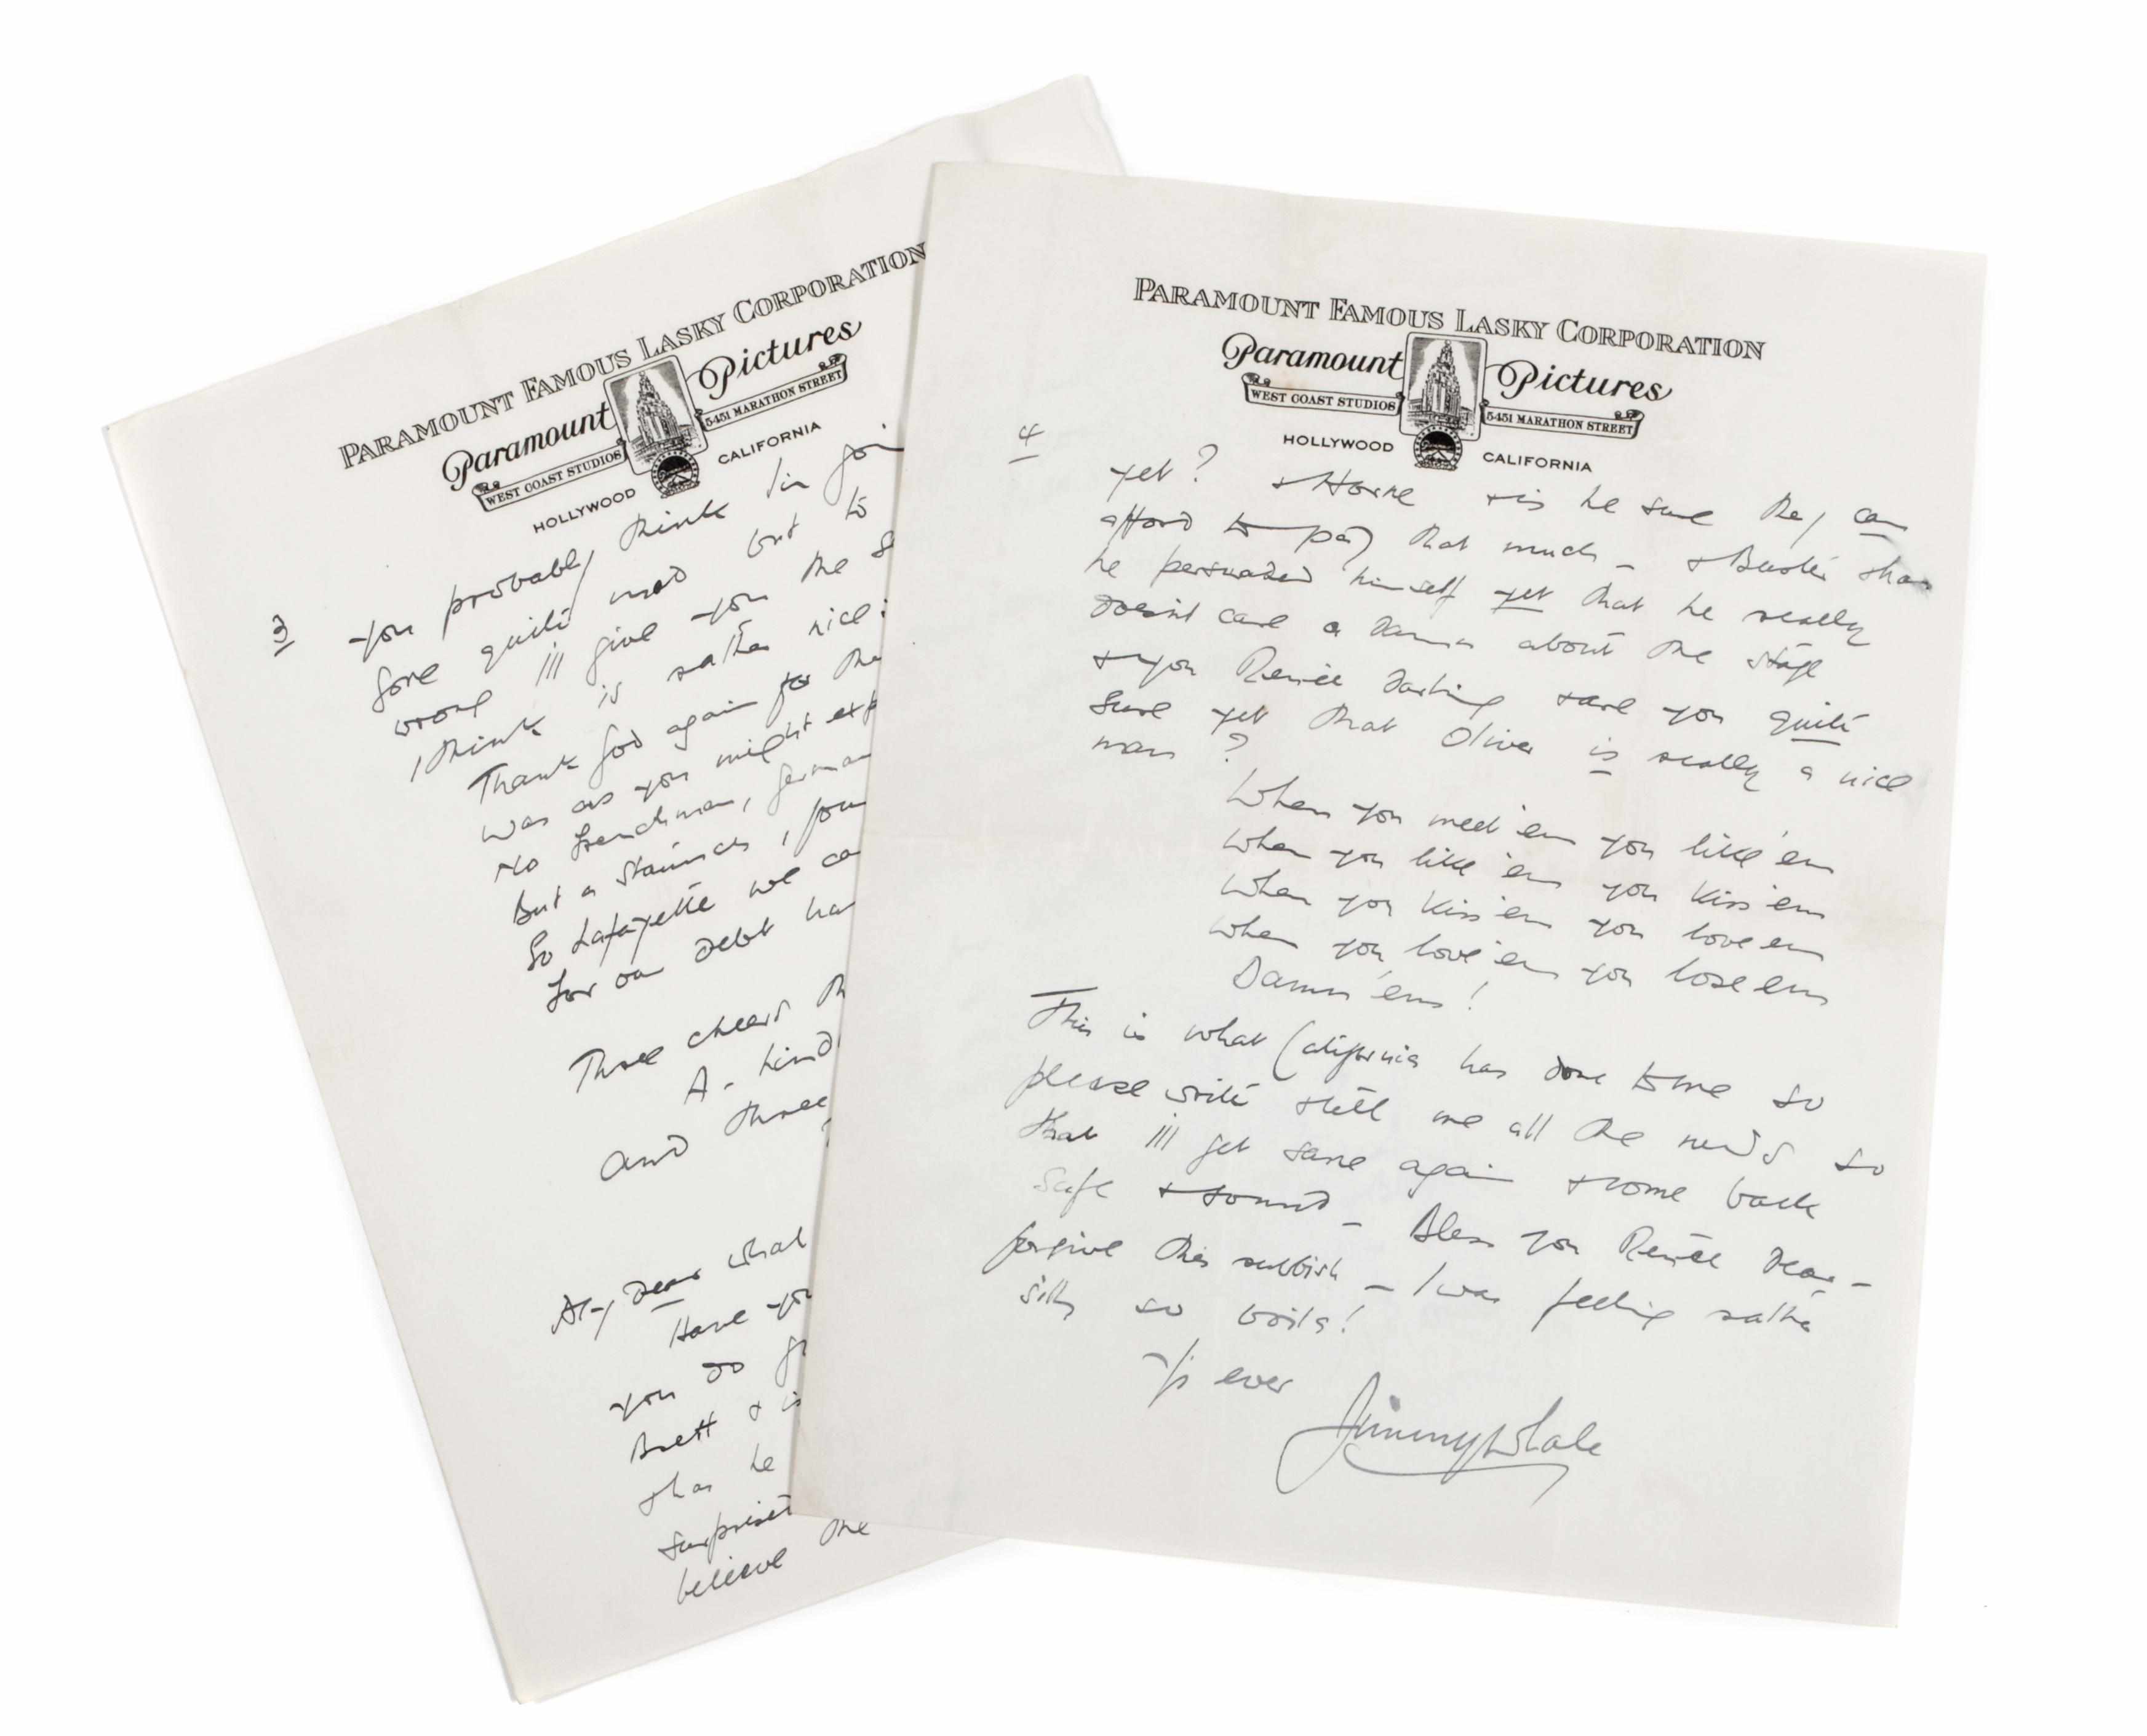 PARAMOUNT FAMOUS LASKY CORPORATION
Paramount Pictures
WEST COAST STUDIOS 5451 MARATHON STREET
HOLLYWOOD CALIFORNIA
3
you probably think I'm goi
gone quite mad but to
wrong I'll give you the S
I think is rather nice:
Thank God again for the
was as you might exp
No Frenchman, German
But a staunch, four
So Lafayette we ca
For our debt ha
Three cheers th
A- Lind
and three
My Dear what
Have you
you do
Brett & is
& has he
surprised
believe the
PARAMOUNT FAMOUS LASKY CORPORATION
Paramount Pictures
WEST COAST STUDIOS 5451 MARATHON STREET
HOLLYWOOD CALIFORNIA
4
yet? & Horne & is he sure they can
afford to pay that much - & Buster & has
he persuaded himself yet that he really
doesn't care a damn about the stage
& you Renée darling & are you quite
sure yet that Oliver is really a nice
man?
When you meet 'em you like 'em
When you like 'em you kiss 'em
When you kiss 'em you love em
When you love 'em you lose em
Damn 'em!
This is what California has done to me so
please write & tell me all the news so
that I'll get sane again & come back
safe & sound - Bless you Renée dear -
forgive this rubbish - I was feeling rather
silly so voila!
Yrs ever
Jimmy Whale